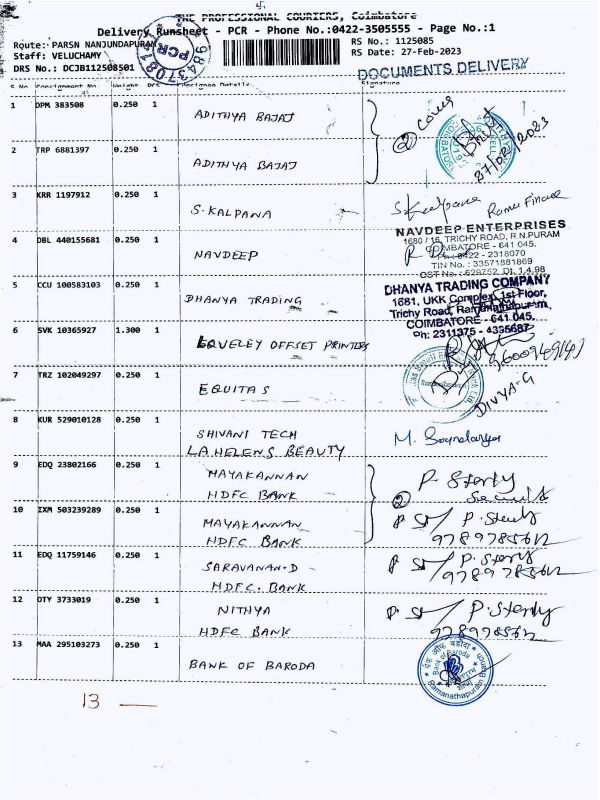 THE PROFESSIONAL COURIERS, Coimbatore
Delivery Runsheet - PCR - Phone No.:0422-3505555 - Page No.:1
Route: PARSN NANJUNDAPURAM
RS No.: 1125085
Staff: VELUCHAMY
RS Date: 27-Feb-2023
DRS No.: DCJB112508501
PCR
DOCUMENTS DELIVERY
S No Consignment No. Weight Signature
1 DPM 383508 0.250 1 ADITHYA BAJAJ
2 TRP 6881397 0.250 1 ADITHYA BAJAJ
3 KRR 1197912 0.250 1 S.KALPANA
4 DBL 440155681 0.250 1 NAVDEEP
NAVDEEP ENTERPRISES
1680 / 16, TRICHY ROAD, R.N.PURAM
COIMBATORE - 641 045.
Ph : 0422 - 2318070
TIN No. : 33571881869
CST No. : 629752, Dt. 1.4.98
5 CCU 100583103 0.250 1 DHANYA TRADING
DHANYA TRADING COMPANY
1681, UKK Complex, 1st Floor,
Trichy Road, Ramanathapuram,
COIMBATORE - 641 045.
Ph: 2311375 - 4335687
6 SVK 10365927 1.300 1 LOVELEY OFFSET PRINTERS
7 TRZ 102049297 0.250 1 EQUITAS
DIVYA.G
8 KUR 529010128 0.250 1 SHIVANI TECH
LA HELENS BEAUTY
9 EDQ 23802166 0.250 1 MAYAKANNAN
HDFC BANK
10 IXM 503239289 0.250 1 MAYAKANNAN
HDFC BANK
11 EDQ 11759146 0.250 1 SARAVANAN.D
HDFC. BANK
12 OTY 3733019 0.250 1 NITHYA
HDFC BANK
13 MAA 295103273 0.250 1 BANK OF BARODA
बैंक ऑफ बड़ौदा
Bank of Baroda
Ramanathapuram Branch
13 —